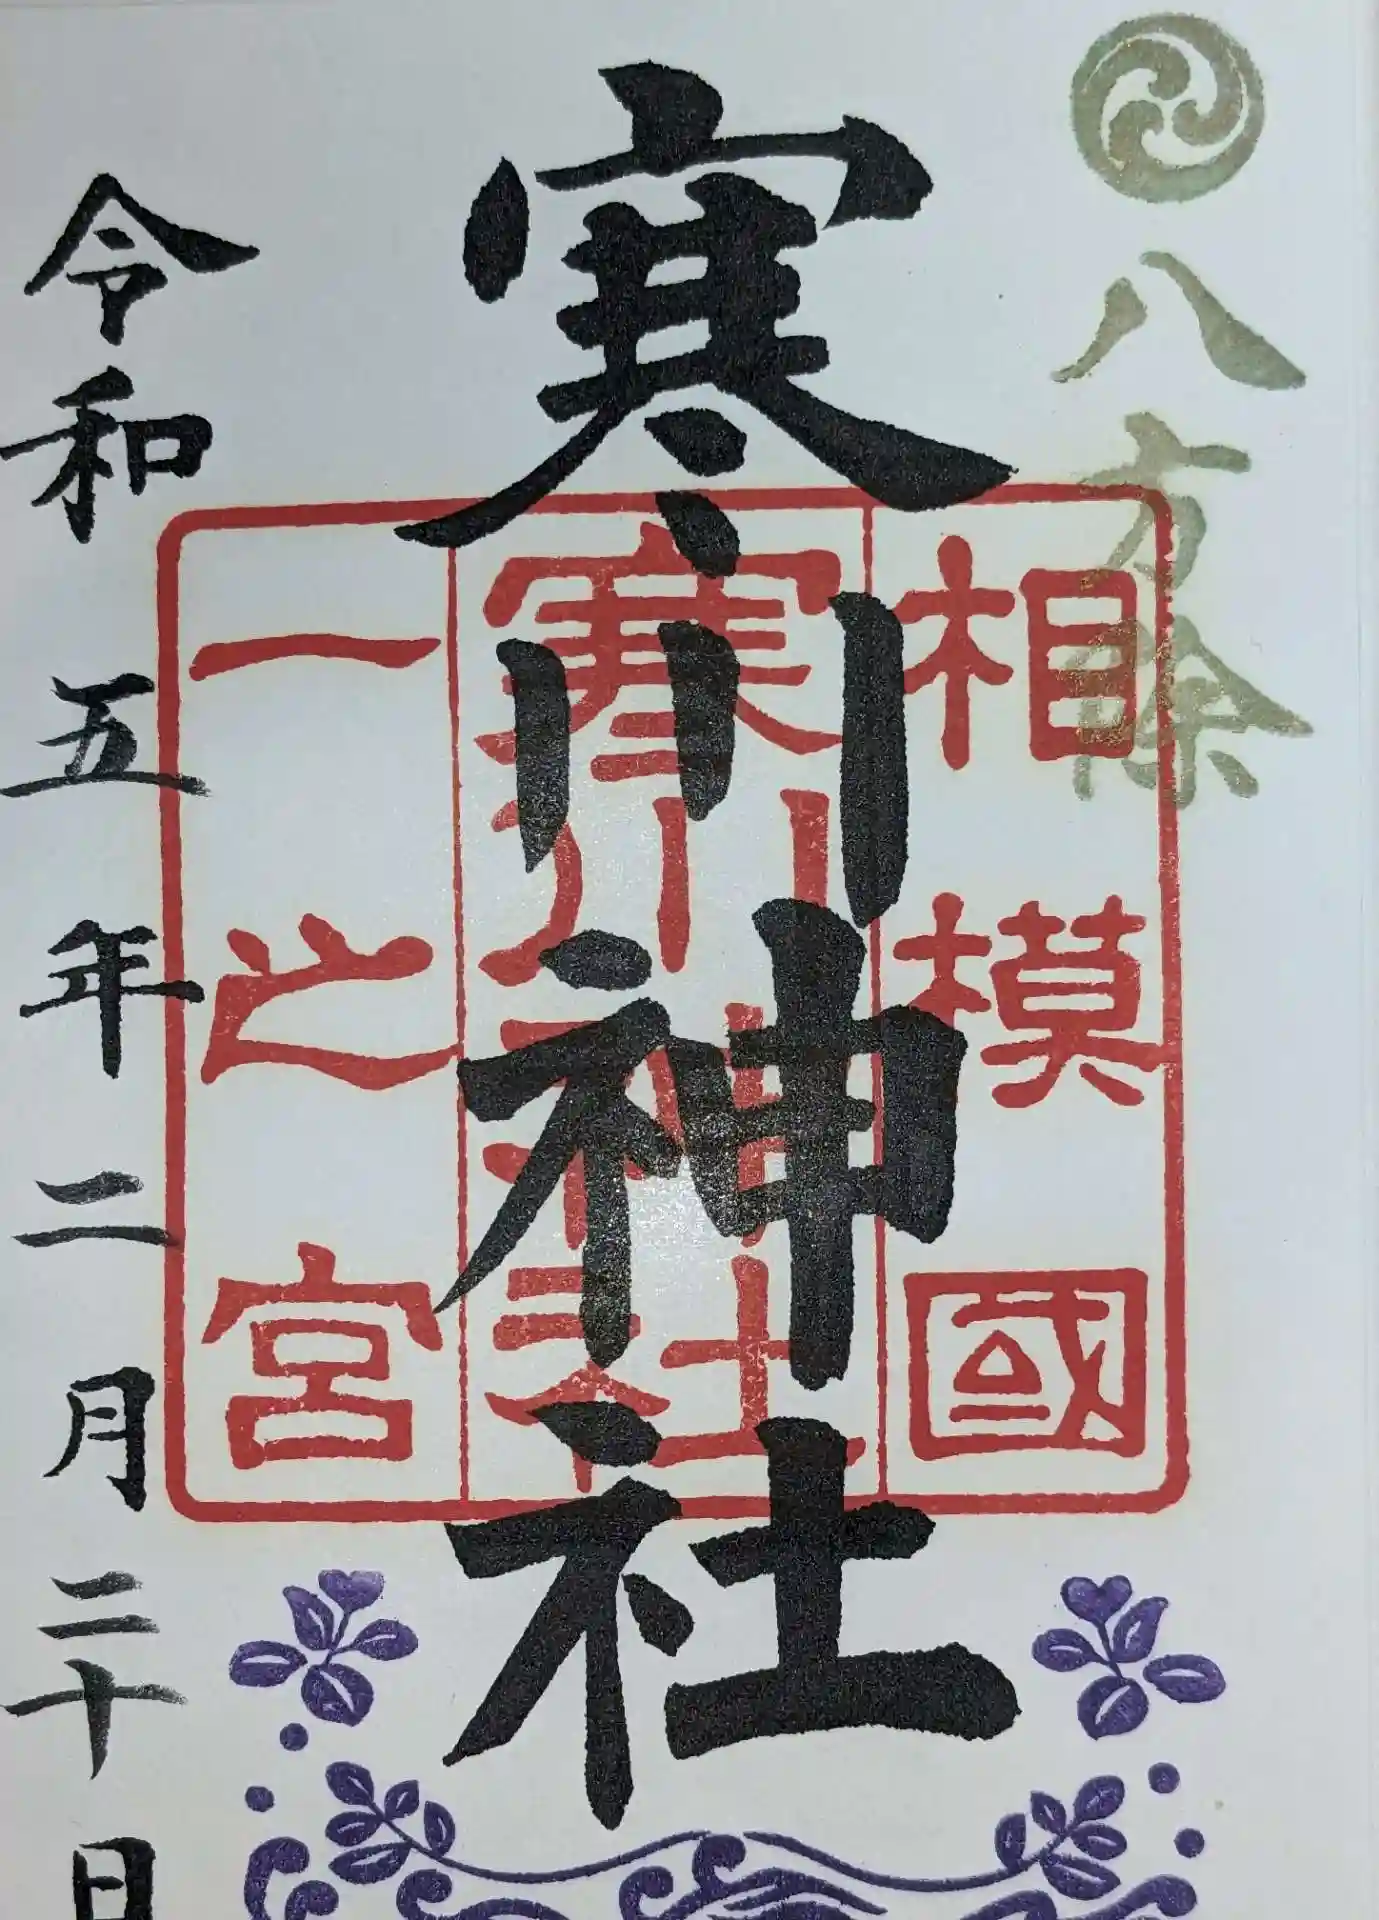 八方除
寒川神社
相模國
寒川神社
一之宮
令和五年二月二十日